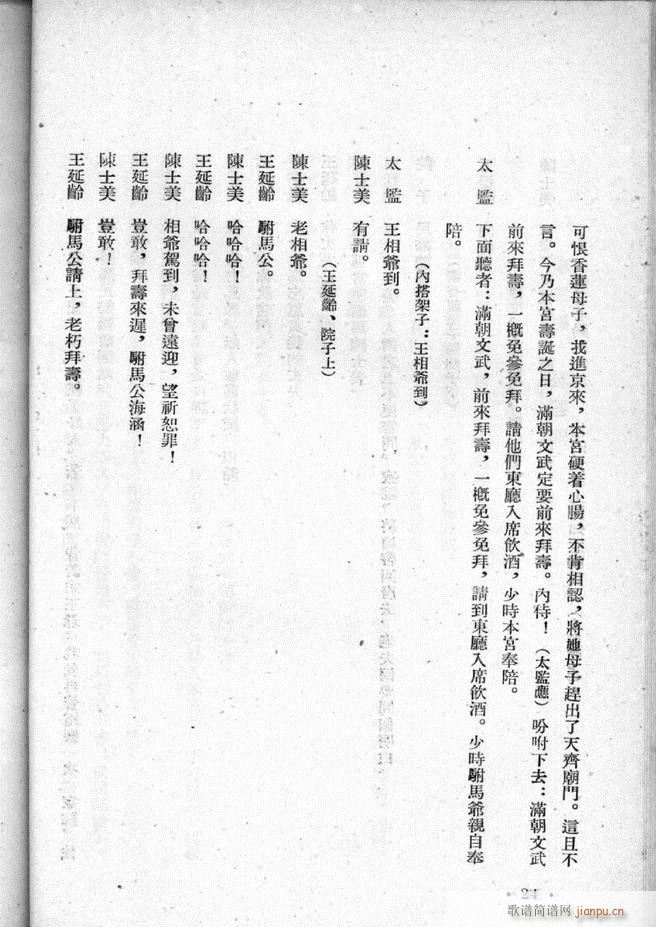 可恨香蓮母子，找進京來，本宮硬着心腸，不肯相認，將她母子趕出了天齊廟門。這且不
言。今乃本宮壽誕之日，滿朝文武定要前來拜壽。內侍！（太監應）吩咐下去：滿朝文武
前來拜壽，一概免參免拜。請他們東廳入席飲酒，少時本宮奉陪。
太　監　下面聽者：滿朝文武，前來拜壽，一概免參免拜，請到東廳入席飲酒。少時駙馬爺親自奉
陪。
（內搭架子：王相爺到）
太　監　王相爺到。
陳士美　有請。
（王延齡、院子上）
陳士美　老相爺。
王延齡　駙馬公。
陳士美　哈哈哈！
王延齡　哈哈哈！
陳士美　相爺駕到，未曾遠迎，望祈恕罪！
王延齡　豈敢，拜壽來遲，駙馬公海涵！
陳士美　豈敢！
王延齡　駙馬公請上，老朽拜壽。
· 24 ·
歌谱简谱网 jianpu.cn